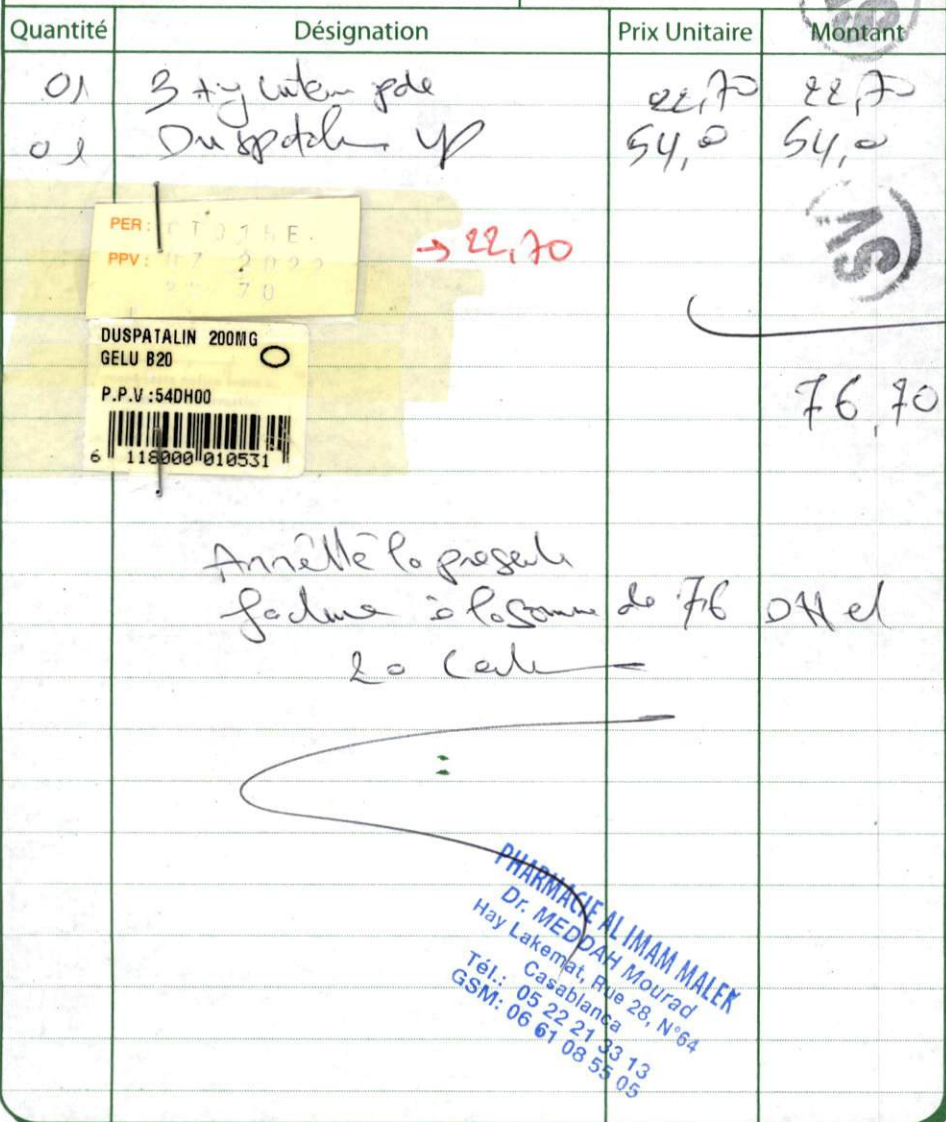 Quantité Désignation Prix Unitaire Montant
01 22,70 22,70
01 Duspatalin 54,0 54,0
PER:
PPV: 07 2022
22 70
→ 22,70
DUSPATALIN 200MG
GELU B20
P.P.V :54DH00
6 118000 010531
76,70
Arrêtté la presente
facture à la somme de 76 DH et
PHARMACIE AL IMAM MALEK
Dr. MEDDAH Mourad
Hay Lakemat, Rue 28, N°64
Casablanca
Tél.: 05 22 21 33 13
GSM: 06 61 08 55 05